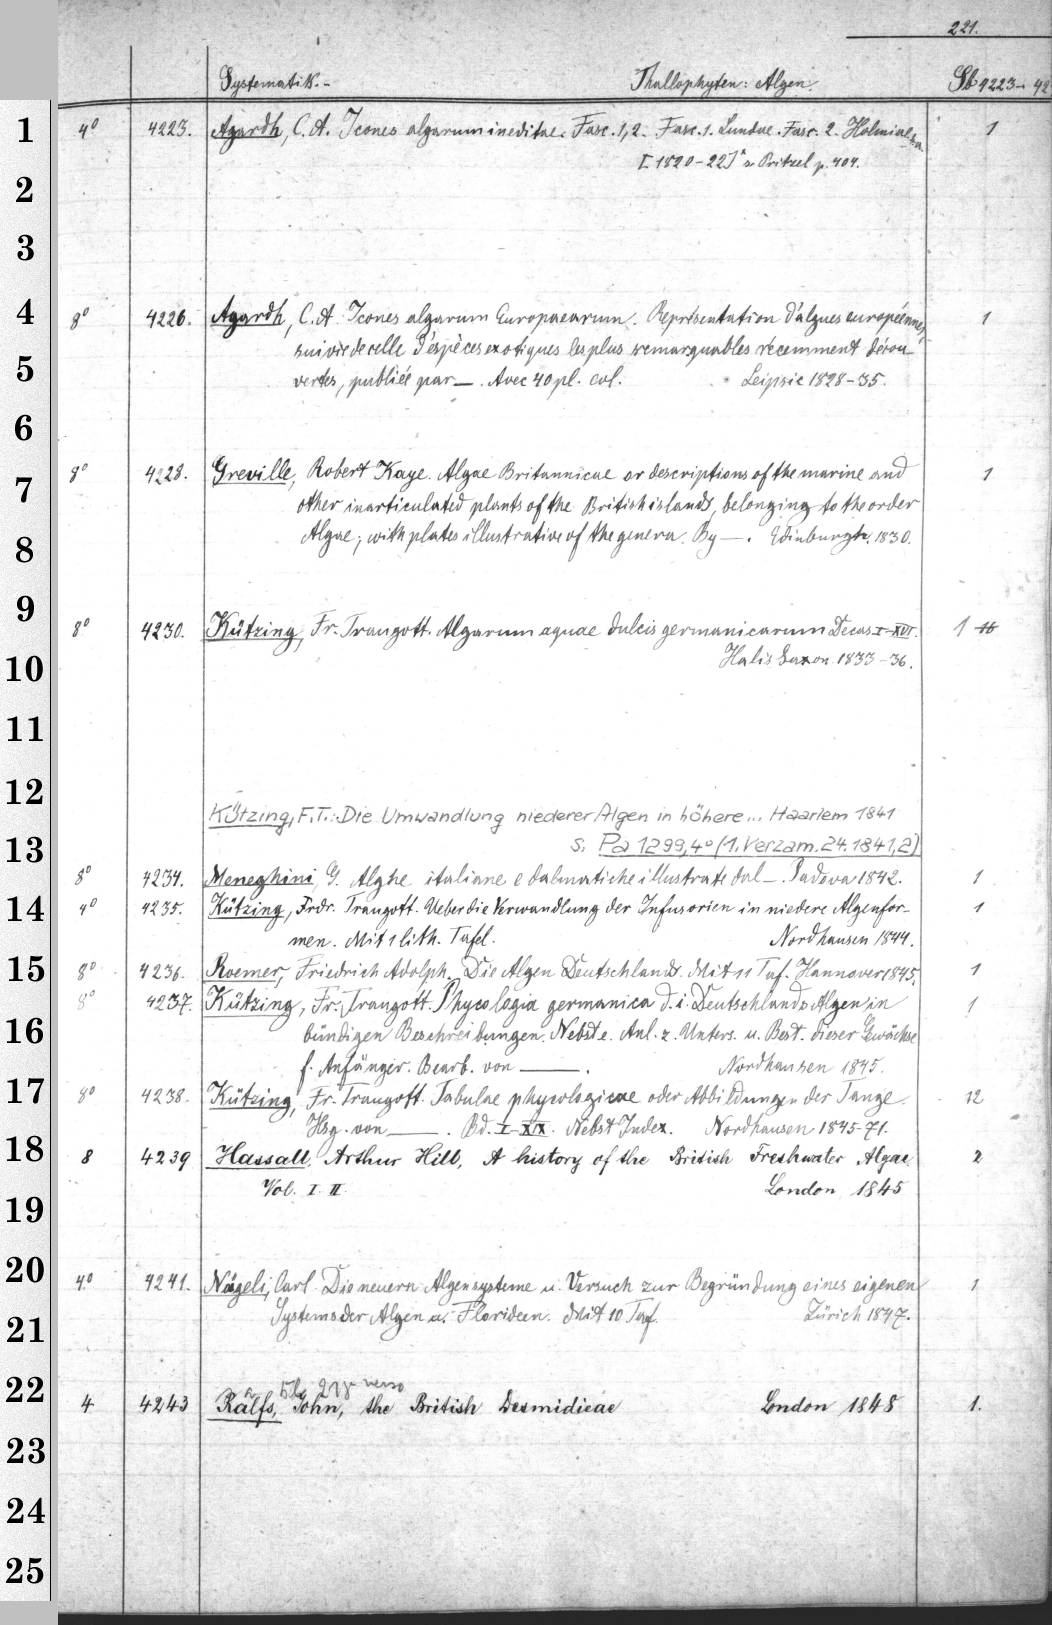 221.
Systematik.- Thallophyten: Algen. Sb 4223-42
1 4° 4223. Agardh, C. A. Icones algarum ineditae. Fasc. 1, 2. Fasc. 1. Lundae. Fasc. 2. Holmiae s.a. 1
[1820-22] Pritzel p. 404.
2
3
4 8° 4226. Agardh, C. A. Icones algarum Europaearum. Représentation d'algues européennes, 1
suivie de celle d'espèces exotiques les plus remarquables récemment décou-
5 vertes, publiée par —. Avec 40 pl. col. Leipsic 1828-35.
6
7 8° 4228. Greville, Robert Kaye. Algae Britannicae or descriptions of the marine and 1
other inarticulated plants of the British islands, belonging to the order
8 Algae; with plates illustrative of the genera. By —. Edinburgh. 1830.
9 8° 4230. Kützing, Fr. Traugott. Algarum aquae dulcis germanicarum Decas I-XVI. 1 16
10 Halis Saxon. 1833-36.
11
12
Kützing, F.T.: Die Umwandlung niederer Algen in höhere... Haarlem 1841
13 s. Pa 1299, 4° (1. Verzam. 24. 1841, 2)
8° 4234. Meneghini, G. Alghe italiane e dalmatiche illustrate dal —. Padova 1842. 1
14 4° 4235. Kützing, Frdr. Traugott. Ueber die Verwandlung der Infusorien in niedere Algenfor- 1
men. Mit 1 lith. Tafel. Nordhausen 1844.
15 8° 4236. Roemer, Friedrich Adolph. Die Algen Deutschlands. Mit 11 Taf. Hannover 1845. 1
8° 4237. Kützing, Fr. Traugott. Phycologia germanica d. i. Deutschlands Algen in 1
16 bündigen Beschreibungen. Nebst e. Anl. z. Unters. u. Best. dieser Gewächse
f. Anfänger. Bearb. von —. Nordhausen 1845.
17 8° 4238. Kützing, Fr. Traugott. Tabulae phycologicae oder Abbildungen der Tange. 12
Hsg. von —. Bd. I-XX. Nebst Index. Nordhausen 1845-71.
18 8 4239 Hassall, Arthur Hill, A history of the British Freshwater Algae 2
Vol. I. II. London 1845
19
20 4° 4241. Nägeli, Carl. Die neuern Algensysteme u. Versuch zur Begründung eines eigenen 1
Systems der Algen u. Florideen. Mit 10 Taf. Zürich 1847.
21
verso
22 4 4243 Ralfs, John, the British Desmidieae London 1848 1.
23
24
25